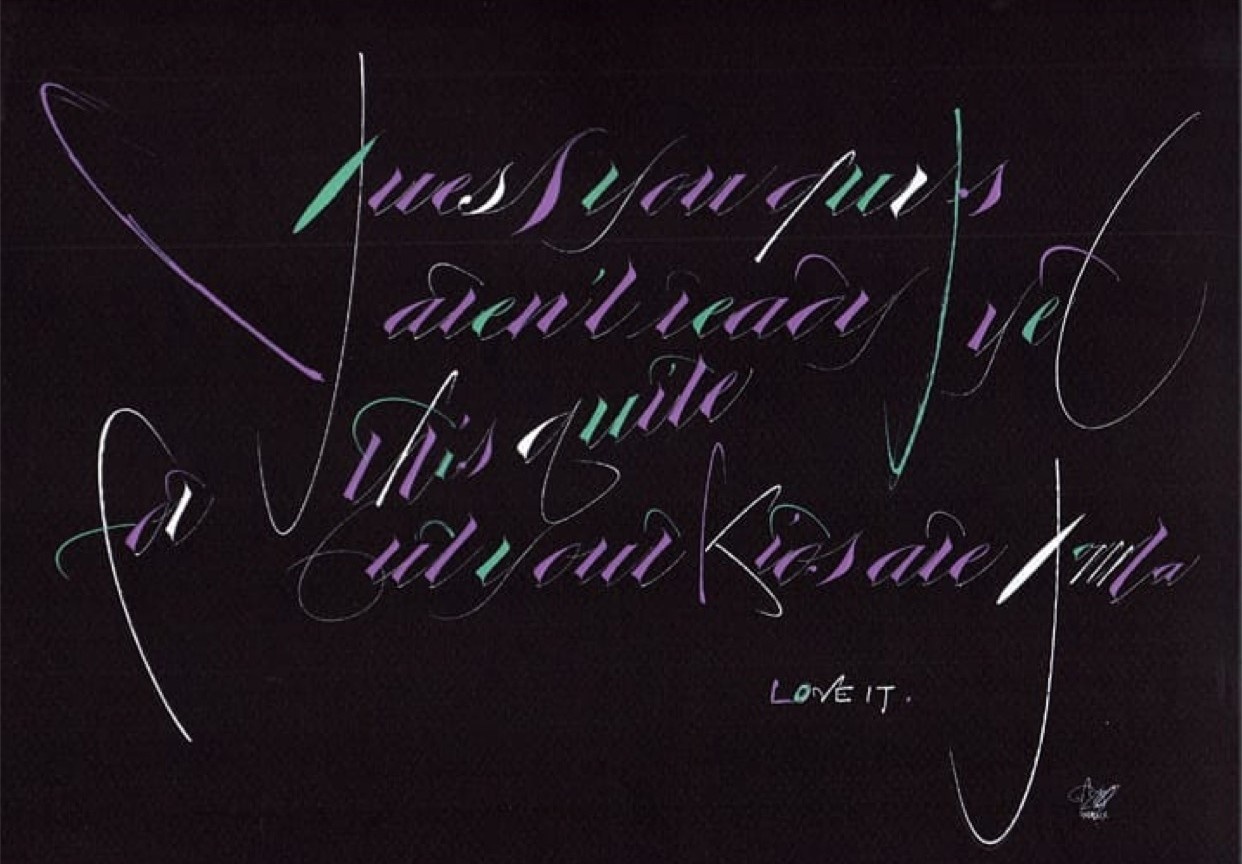 I guess you guys
aren't ready yet
for this quite
but your Kids are gonna
LOVE IT.